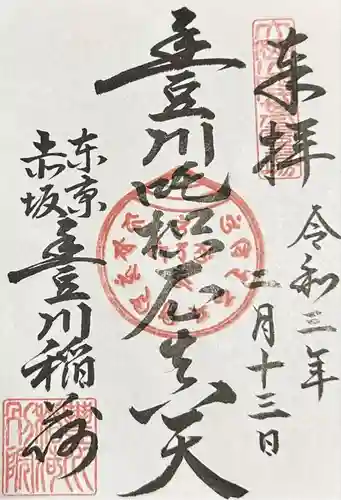 奉拝
令和三年
二月十三日
豊川吒枳尼真天
東京
赤坂
豊川稲荷